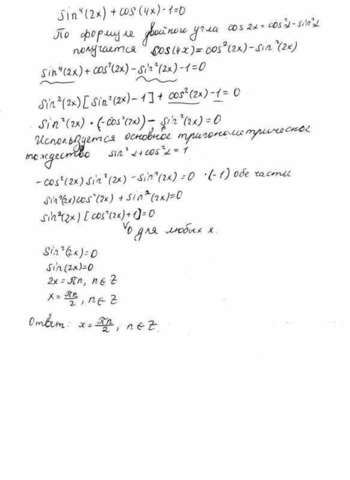 sin⁴(2x) + cos(4x) - 1 = 0
По формуле двойного угла cos 2α = cos²α - sin²α
получается cos(4x) = cos²(2x) - sin²(2x)
sin⁴(2x) + cos²(2x) - sin²(2x) - 1 = 0
sin²(2x) [sin²(2x) - 1] + cos²(2x) - 1 = 0
sin²(2x) · (-cos²(2x)) - sin²(2x) = 0
Используется основное тригонометрическое
тождество sin²α + cos²α = 1
-cos²(2x) sin²(2x) - sin²(2x) = 0 ·(-1) обе части
sin²(2x) cos²(2x) + sin²(2x) = 0
sin²(2x) [cos²(2x) + 1] = 0
для любых x.
sin²(2x) = 0
sin(2x) = 0
2x = πn, n ∈ Z
x = πn/2, n ∈ Z
Ответ: x = πn/2, n ∈ Z.